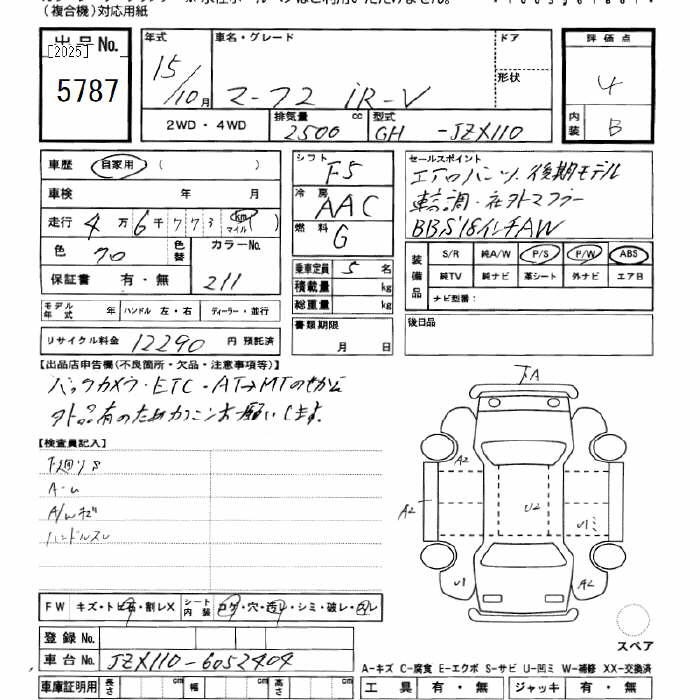 （複合機）対応用紙
出品No.
[2025]
5787
年式 15/10月
車名・グレード マーク2 iR-V
ドア
形状
評価点 4
内装 B
2WD・4WD
排気量 2500 cc
型式 GH -JZX110
車歴 自家用（ ）
車検 年 月
走行 4万6千773 km マイル
色 クロ
色替
カラーNo. 211
保証書 有・無
シフト F5
冷房 AAC
燃料 G
乗車定員 5名
積載量 kg
総重量 kg
書類期限
月 日
セールスポイント
エアロバンパー 後期モデル
車高調・社外マフラー
BBS 18インチAW
装備品
S/R 純A/W P/S P/W ABS
純TV 純ナビ 革シート 外ナビ エアB
ナビ型番：
後日品
モデル年式 年
ハンドル 左・右
ディーラー・並行
リサイクル料金 12290 円 預託済
【出品店申告欄(不良箇所・欠品・注意事項等)】
バックカメラ・ETC・AT→MTのせかえ
外品有のためカクニンお願いします。
【検査員記入】
下廻りS
A-U
A/Wキズ
ハンドルスレ
下A
A2
A2
U2
U1
U1
A2
FW キズ・トビ石・割レX
シート内装 コゲ・穴・汚レ・シミ・破レ・スレ
登録No.
車台No. JZX110-6052404
スペア
A-キズ C-腐食 E-エクボ S-サビ U-凹ミ W-補修 XX-交換済
車庫証明用 長さ cm 幅 cm 高さ cm
工具 有・無 ジャッキ 有・無